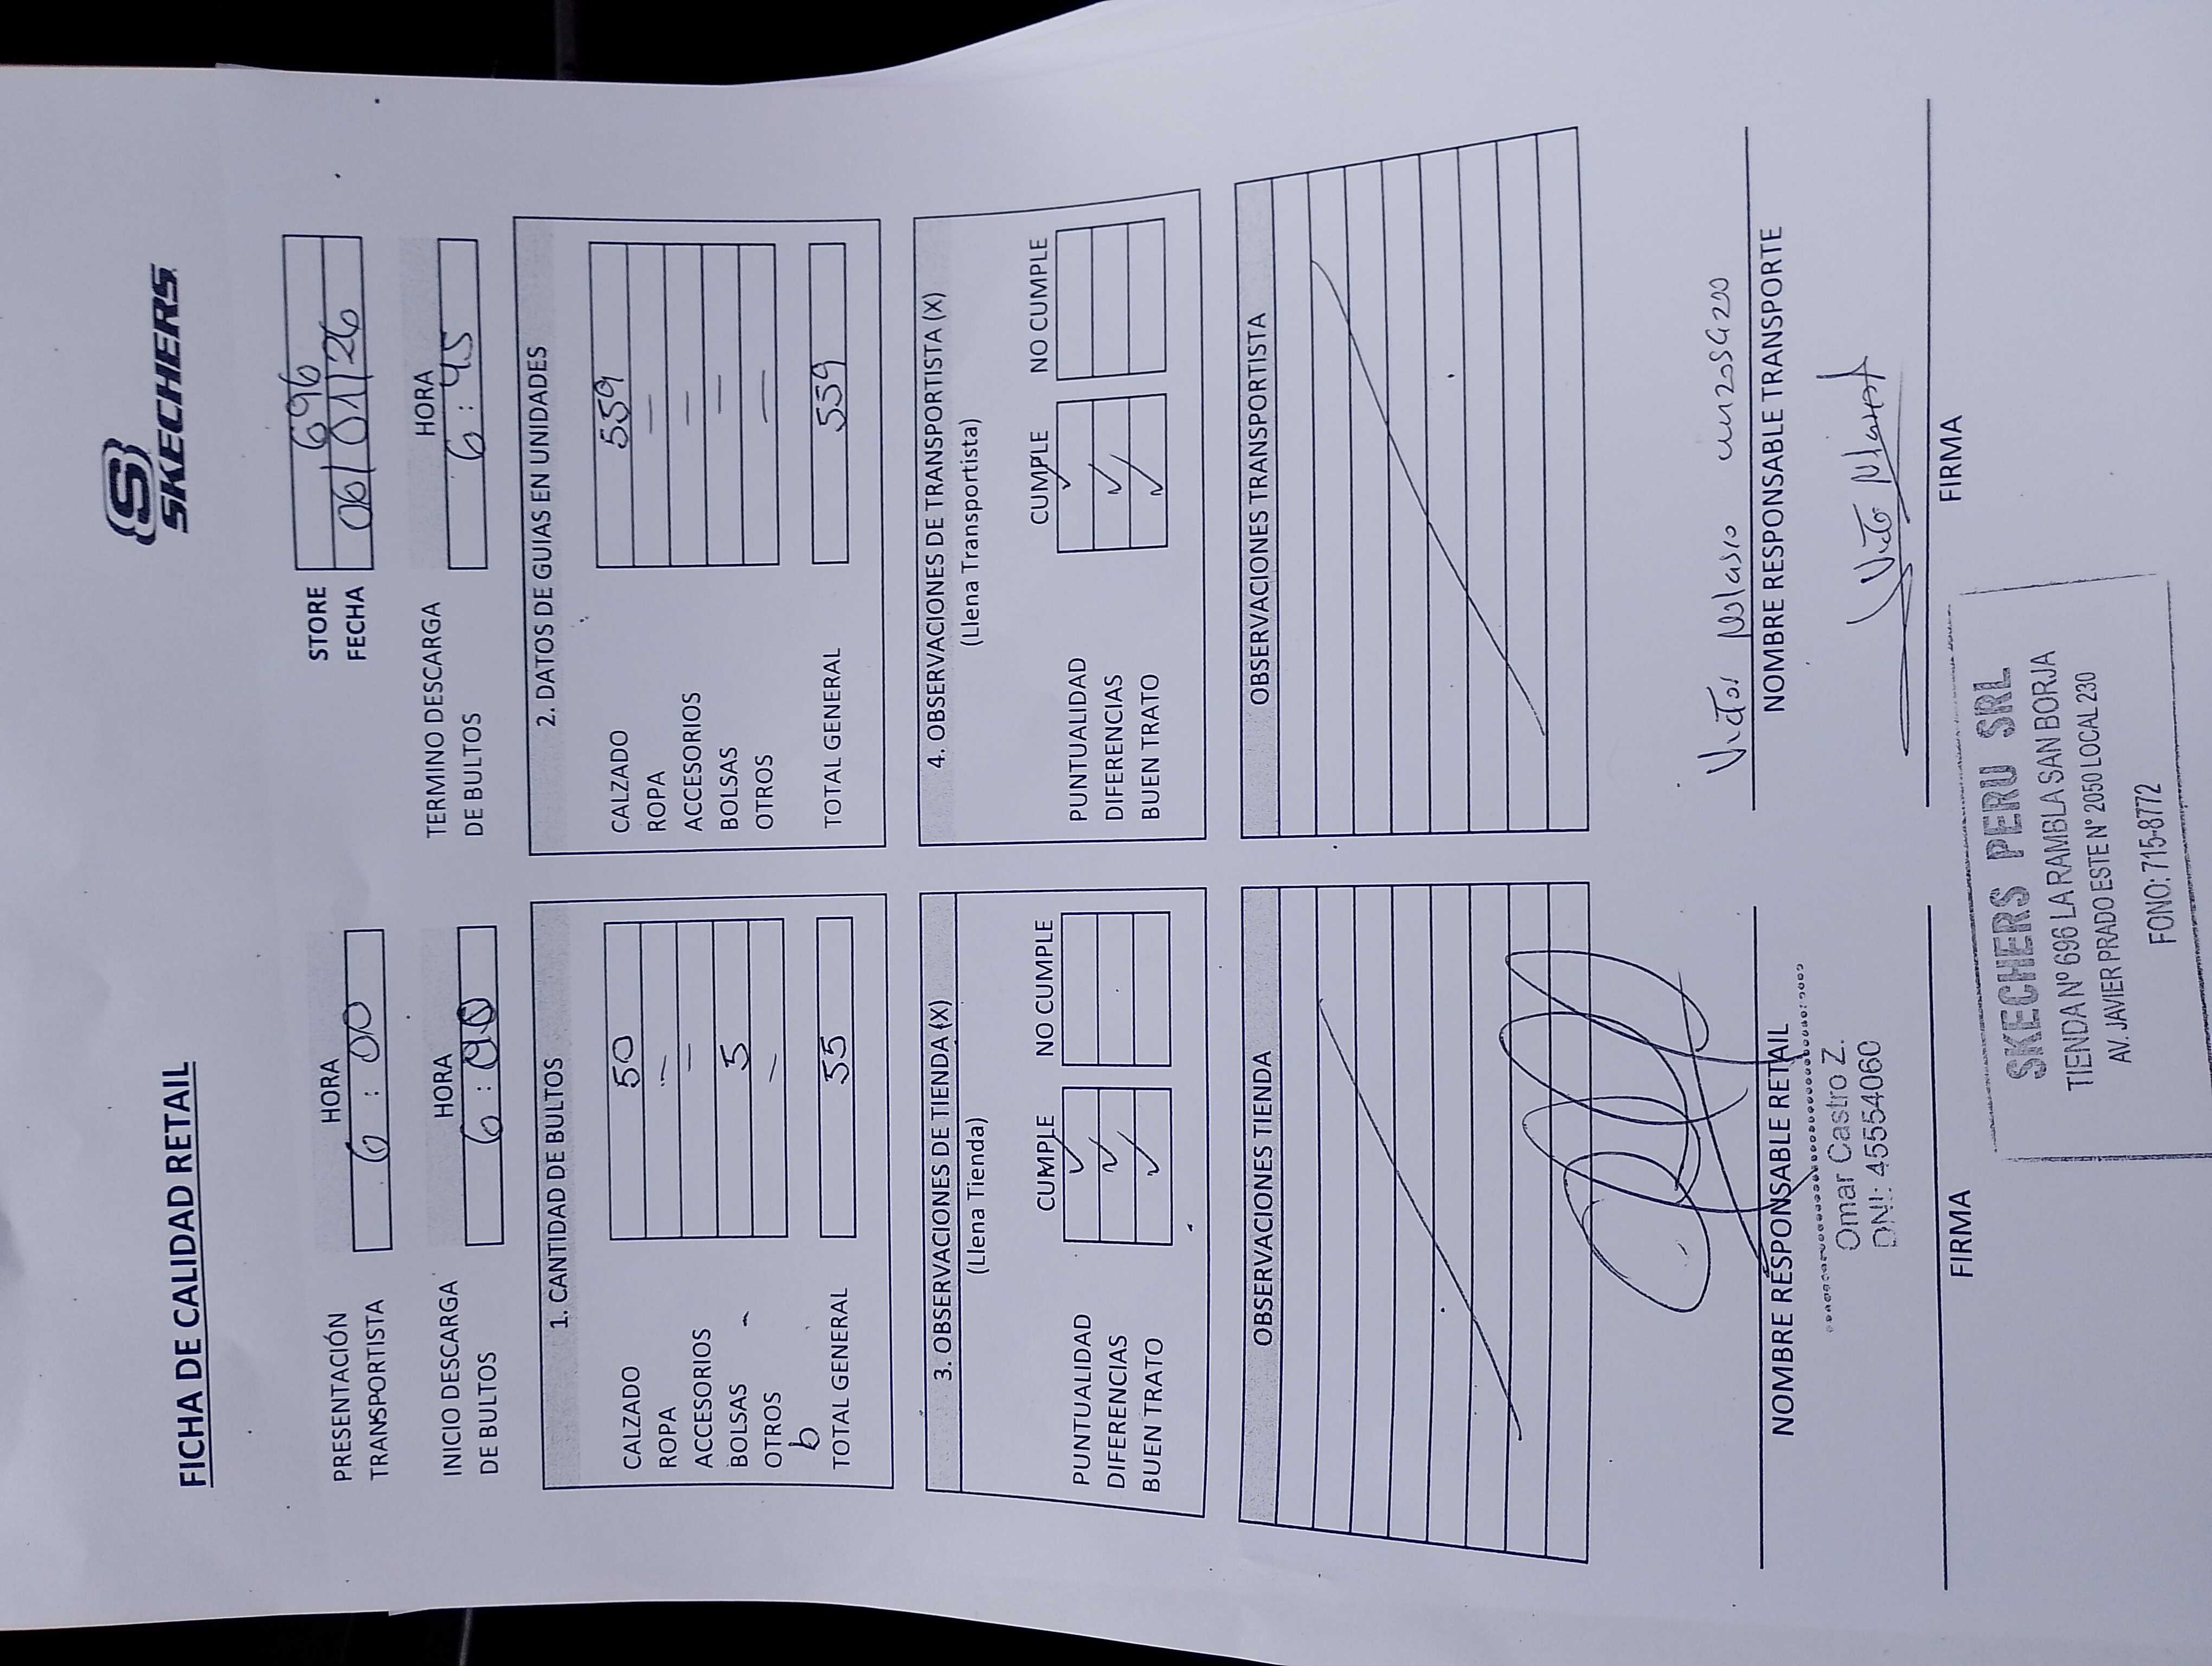 SKECHERS
FICHA DE CALIDAD RETAIL
STORE 696
FECHA 06/01/26
HORA
PRESENTACIÓN
TRANSPORTISTA 6:00
HORA
INICIO DESCARGA
DE BULTOS 6:
HORA
TERMINO DESCARGA
DE BULTOS 6:45
1. CANTIDAD DE BULTOS
CALZADO 50
ROPA —
ACCESORIOS —
BOLSAS 5
OTROS —
TOTAL GENERAL 55
2. DATOS DE GUIAS EN UNIDADES
CALZADO 559
ROPA —
ACCESORIOS —
BOLSAS —
OTROS —
TOTAL GENERAL 559
3. OBSERVACIONES DE TIENDA (X)
(Llena Tienda)
CUMPLE NO CUMPLE
PUNTUALIDAD ✓
DIFERENCIAS ✓
BUEN TRATO ✓
4. OBSERVACIONES DE TRANSPORTISTA (X)
(Llena Transportista)
CUMPLE NO CUMPLE
PUNTUALIDAD ✓
DIFERENCIAS ✓
BUEN TRATO ✓
OBSERVACIONES TIENDA
OBSERVACIONES TRANSPORTISTA
NOMBRE RESPONSABLE RETAIL
Omar Castro Z.
DNI: 45554060
FIRMA
Victor
NOMBRE RESPONSABLE TRANSPORTE
FIRMA
SKECHERS PERU SRL
TIENDA Nº 696 LA RAMBLA SAN BORJA
AV. JAVIER PRADO ESTE N° 2050 LOCAL 230
FONO: 715-8772